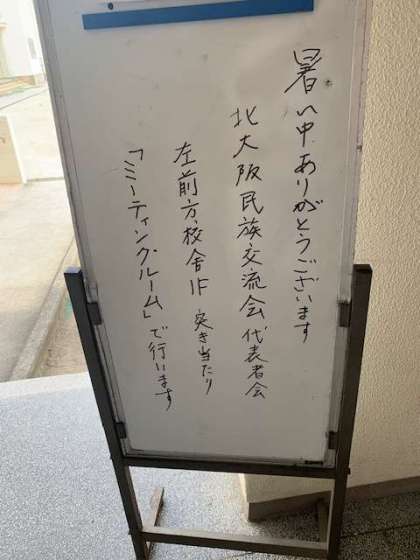 暑い中ありがとうございます
北大阪民族交流会代表者会
左前方校舎1F 突き当たり
「ミーティングルーム」で行います